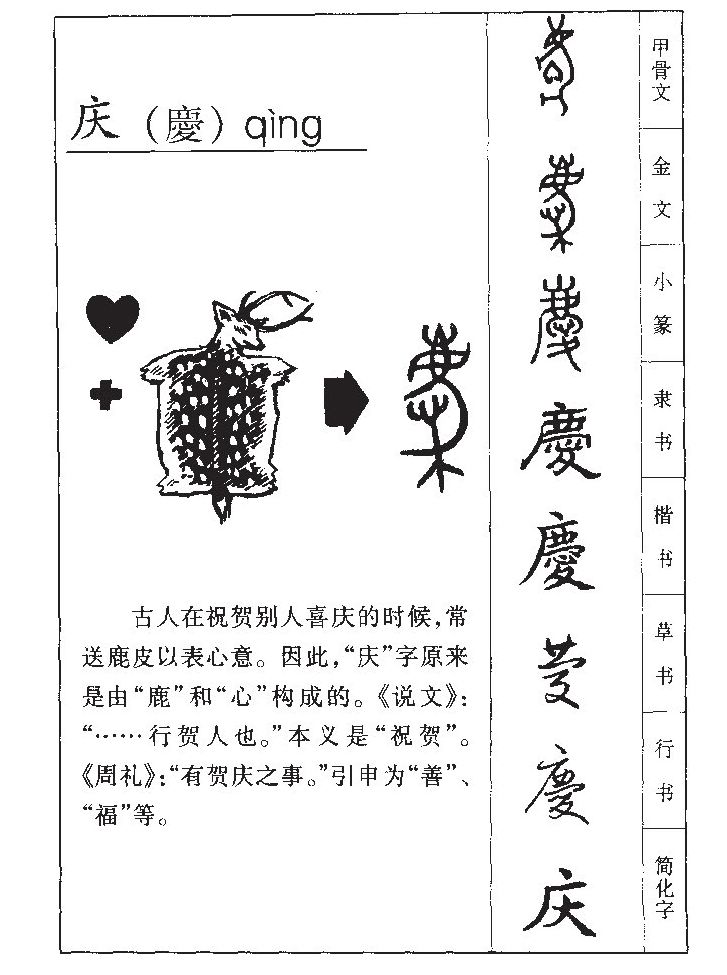 庆（慶）qìng
古人在祝贺别人喜庆的时候，常
送鹿皮以表心意。因此，“庆”字原来
是由“鹿”和“心”构成的。《说文》：
“……行贺人也。”本义是“祝贺”。
《周礼》：“有贺庆之事。”引申为“善”、
“福”等。
甲骨文
金文
小篆
慶
隶书
慶
楷书
慶
草书
行书
慶
简化字
庆